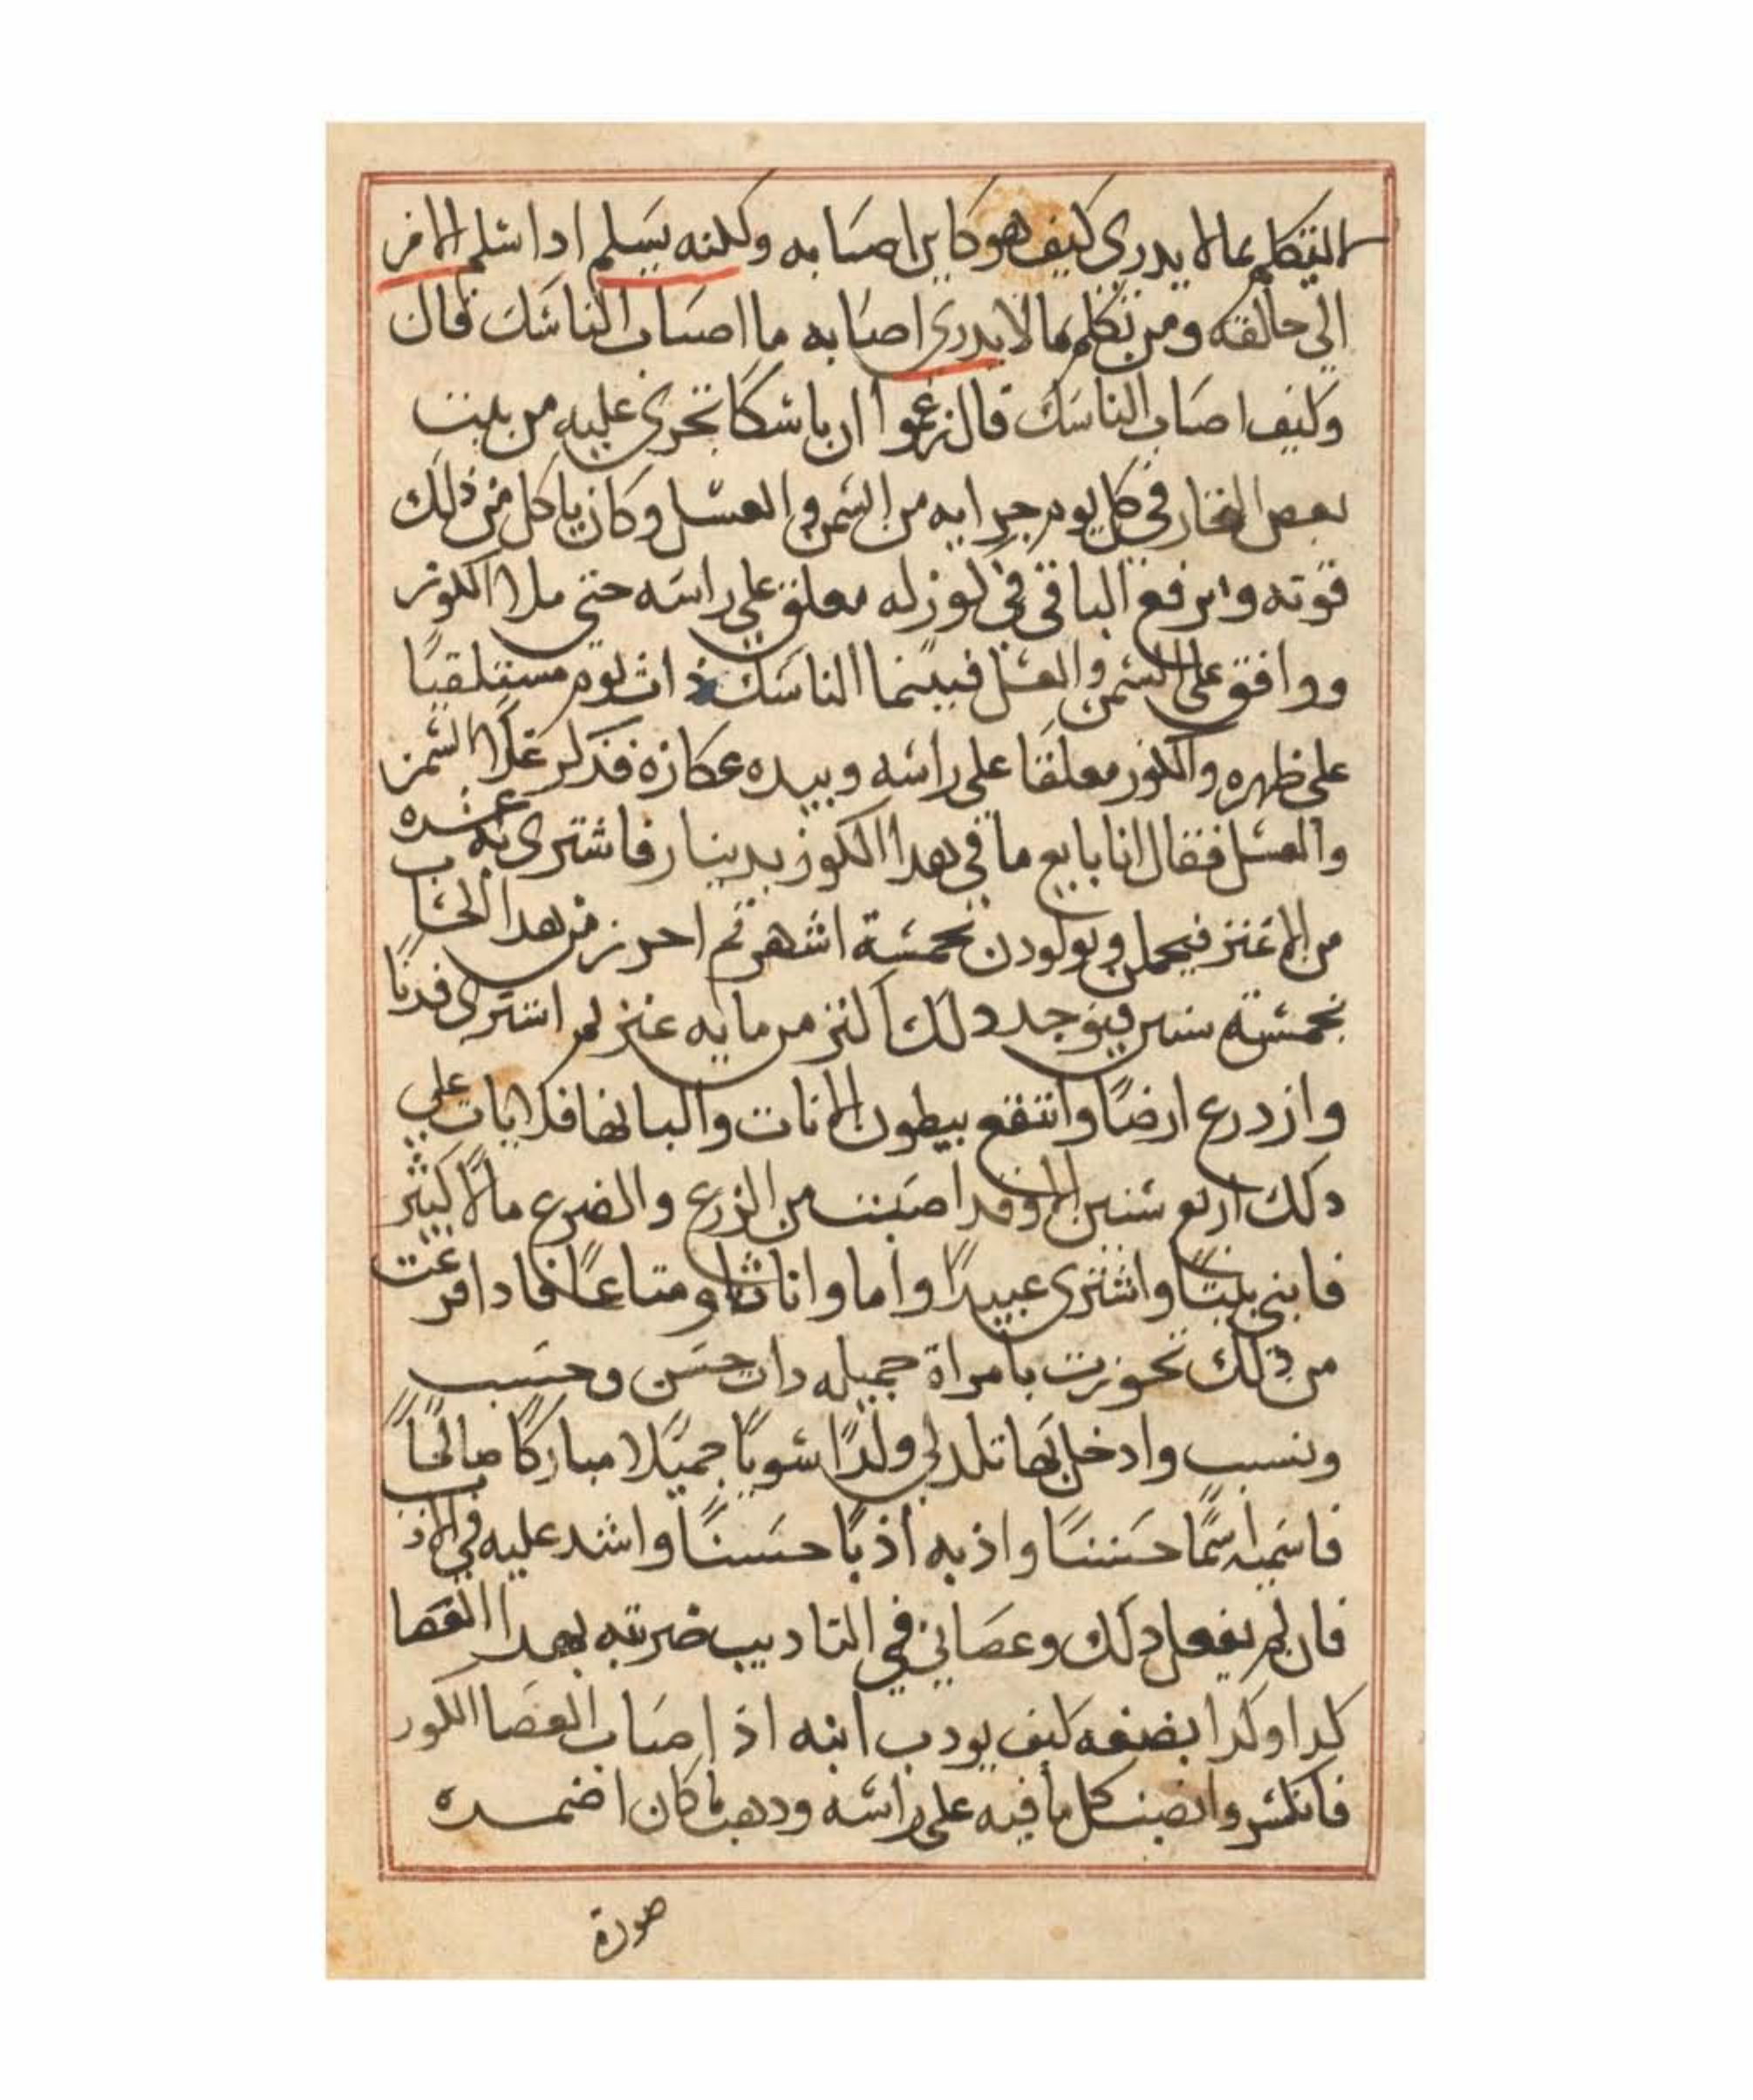 التكلم بمالا يدري كيف هو كاين اصابه ولكنه يسلم اذا سلم الامر
الي خالقه ومن تكلم بمالا يدري اصابه ما اصاب الناسك قال
وكيف اصاب الناسك قال زعموا ان ناسكا تجري عليه من بيت
بعض التجار في كل يوم جرايه من السمن والعسل وكان ياكل من ذلك
قوته ويرفع الباقي في كوز له معلق علي راسه حتي ملا الكوز
ووافق علي السمن والعسل فبينما الناسك ذات يوم مستلقيا
علي ظهره والكوز معلقا علي راسه وبيده عكازه فذكر غلا السمن
والعسل فقال انا بايع ما في هدا الكوز بدينار فاشتري به عشره
من الاعنز فيحملن ويولدون بخمسة اشهر ثم احرز من هدا الحساب
بخمسة سنين فيوجد دلك اكثر من مايه عنز ثم اشتري فدنا
وازدرع ارضا وانتفع ببطون الاناث والبانها فلا ياتي علي
دلك اربع سنين الا وقد اصبت من الزرع والضرع مالا كثير
فابني بيتا واشتري عبيدا واما واناثا ومتاعا فادا فرغت
من ذلك تجوزت بامراة جميله دات حسن وحسب
ونسب وادخل بها تلد لي ولدا سويا جميلا مباركا صالحا
فاسميه اسما حسنا واذبه اذبا حسنا واشد عليه في الاذب
فان لم يفعل دلك وعصاني في التاديب ضربته بهدا العصا
كدا وكدا بضفه كيف يودب ابنه اذ اصاب العصا الكوز
فانكسر وانصب كل ما فيه علي راسه ودهب ما كان اضمره
صورة